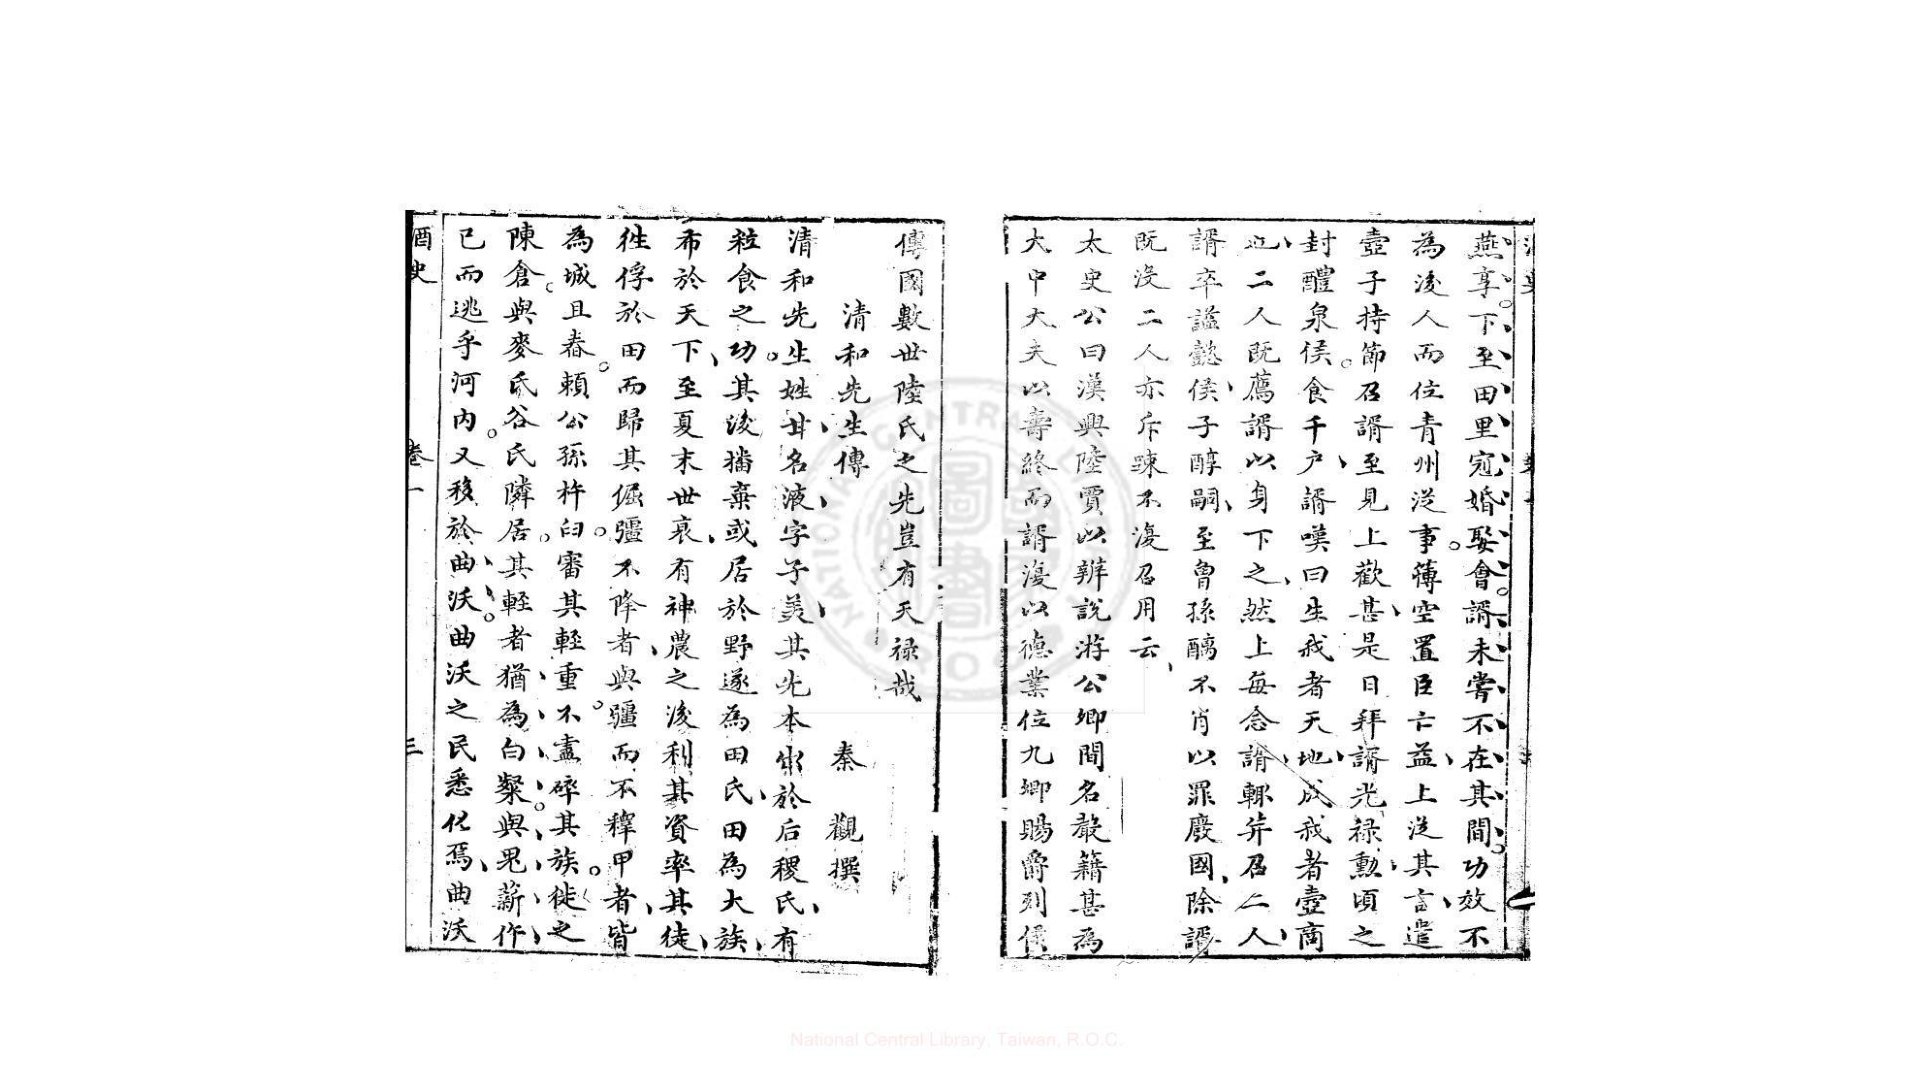 燕享下至田里冠婚娶會諝未嘗不在其間功效不
為後人而位青州從事薄空置臣亡益上從其言遣
壺子持節召諝至見上歡甚是日拜諝光祿勲頃之
封醴泉侯食千户諝嘆曰生我者天地成我者壺商
也二人既薦諝以身下之然上每念諝輒并召二人
諝卒諡懿侯子醇嗣至曾孫醨不肖以罪廢國除諝
既沒二人亦斥踈不復召用云
太史公曰漢興陸賈以辨說游公卿間名聲籍甚為
大中大夫以壽終而諝復以德業位九卿賜爵列侯
傳國數世陸氏之先豈有天禄哉
清和先生傳 秦觀撰
清和先生姓甘名液字子美其先本出於后稷氏有
粒食之功其後播棄或居於野遂為田氏田為大族
布於天下至夏末世衰有神農之後利其資率其徒
徃俘於田而歸其倔彊不降者與彊而不釋甲者皆
為城且舂賴公孫杵臼審其輕重不盡碎其族徙之
陳倉與麥氏谷氏隣居其輕者猶為白粲與鬼薪作
已而逃乎河內又移於曲沃曲沃之民悉化焉曲沃
酒史 卷一 三
National Central Library, Taiwan, R.O.C.